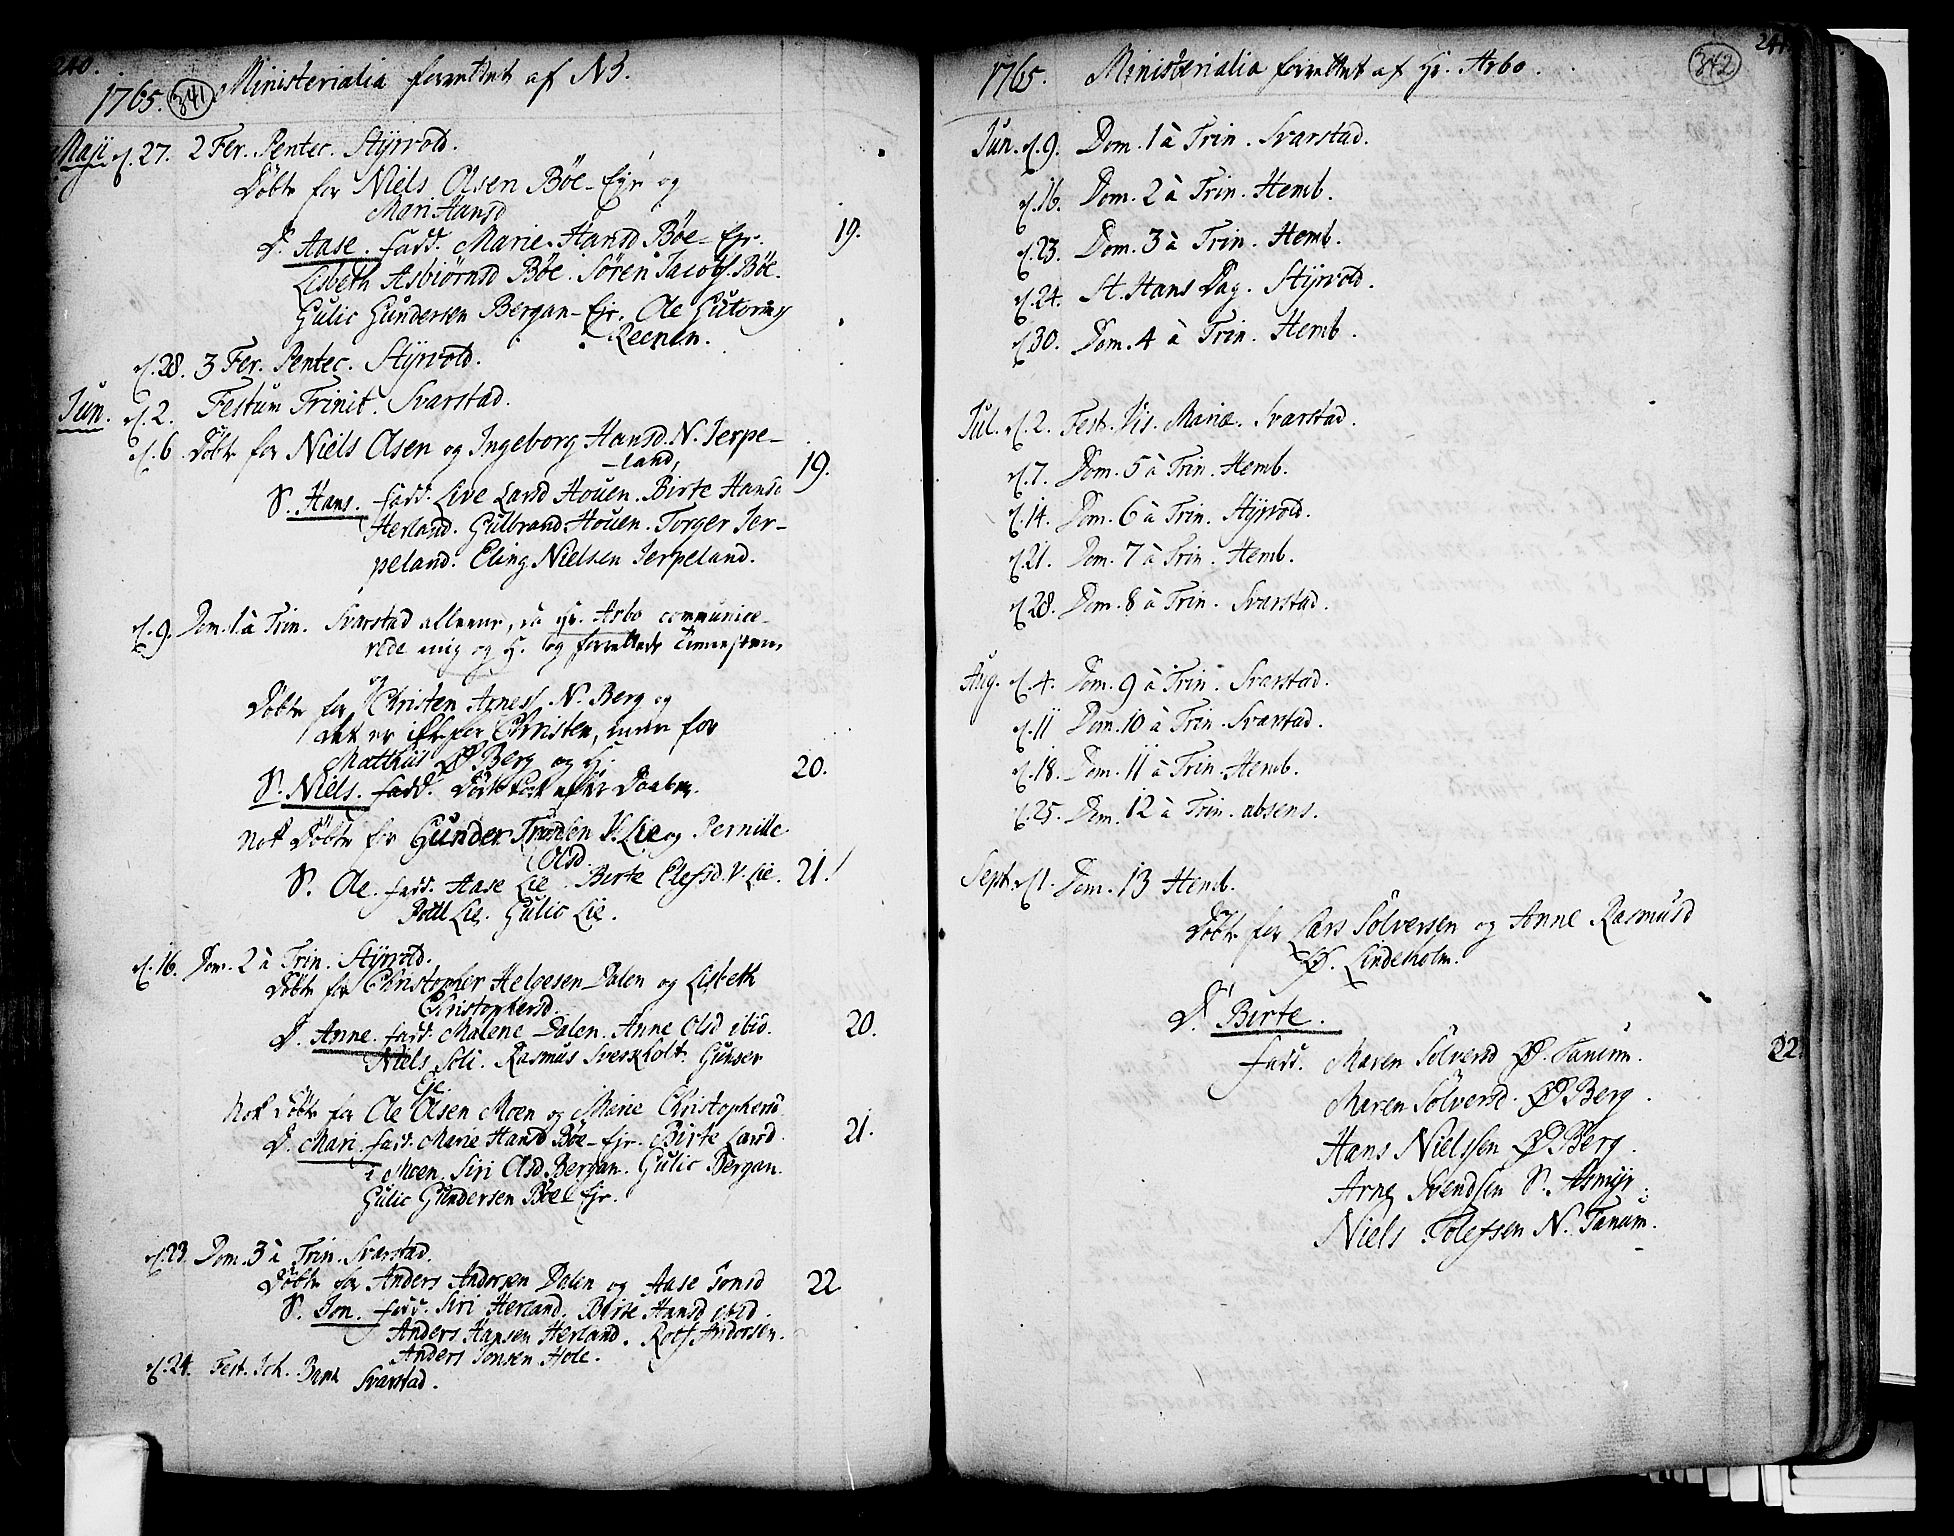 240.
1765. 341 Ministerialia forrettet af NB.
Maji d. 27. 2 Fer. Pentec. Styrvold.
Døbte for Niels Olsen Bøe-Ejr og
Mari Hansd
D. Aase. fadd. Marie Hansd Bøe-Ejr.
Lisbeth Asbiörnsd Bøe. Sören Jacobs. Bøe.
Gulic Gundersen Bergan-Ejr. Ole Gutormsen
Reenen.
19.
d. 28. 3 Fer. Pentec. Styrvold.
Jun. d. 2. Festum Trinit. Svarstad.
d. 6. Døbte for Niels Olsen og Ingeborg Hansd. N. Jerpe-
land,
19.
S. Hans. fadd. Live Larsd Houen. Birte Hansd
Herland. Gulbrand Houen. Torger Jer-
peland. Eling Nielsen Jerpeland.
d. 9. Dom. 1 à Trin. Svarstad allene, da Hr. Arbo communice-
rede mig og H. og forrettede Tienesten,
og
Døbte for Christen Arnes. N. Berg og
det er ikke for Christen, men for
Matthis Ø Berg og H.
S. Niels. fadd. Døde strax efter Daaben.
20.
Nok Døbte for Gunder Trondsen V. Lie og Pernille
Olsd.
S. Ole. fadd. Aase Lie. Birte Elefsd. V. Lie.
21.
Poul Lie. Gulic Lie.
d. 16. Dom. 2 à Trin. Styrvold.
Døbte for Christopher Helgesen Dalen og Lisbeth
Christophersd.
D. Anne. fadd. Malene Dalen. Anne Olsd ibid.
20.
Niels Soli. Rasmus Sverkholt. Gunder
Eje.
Nok Døbte for Ole Olsen Moen og Marie Christophersd
D. Mari. fadd. Marie Hansd Bøe-Ejr. Birte Larsd.
21.
Moen. Siri Olsd. Bergan. Gulic Bergan.
Gulic Gundersen Bøe Ejr.
d. 23. Dom. 3 à Trin. Svarstad.
Døbte for Anders Andersen Dalen og Aase Jonsd
22
S. Jon. fadd. Siri Herland. Birte Hansd ibid.
Anders Hansen Herland. Rolf Andersen.
Anders Jonsen Hole.
d. 24. Fest. Joh. Bapt. Svarstad.
241
342
1765. Ministerialia forrettet af Hr. Arbo.
Jun. d. 9. Dom. 1 à Trin. Svarstad.
d. 16. Dom. 2 à Trin. Hemb.
d. 23. Dom. 3 à Trin. Hemb.
d. 24. St. Hans Dag. Styrvold.
d. 30. Dom. 4 à Trin. Hemb.
Jul. d. 2. Fest. Vis. Mariæ. Svarstad.
d. 7. Dom. 5 à Trin. Hemb.
d. 14. Dom. 6 à Trin. Styrvold.
d. 21. Dom. 7 à Trin. Hemb.
d. 28. Dom. 8 à Trin. Svarstad.
Aug. d. 4. Dom. 9 à Trin. Svarstad.
d. 11 Dom. 10 à Trin. Svarstad.
d. 18. Dom. 11 à Trin. Hemb.
d. 25. Dom. 12 à Trin. absens.
Sept. d. 1. Dom. 13 Hemb.
Døbte for Lars Sölversen og Anne Rasmusd
Ø. Lindeholm.
D. Birte.
fadd. Maren Sölversd Ø. Tanum.
22.
Maren Sölversd. Ø Berg.
Hans Nielssen Ø Berg.
Arne Svendsen S. Asmyr.
Niels Tolefsen N. Tanum.